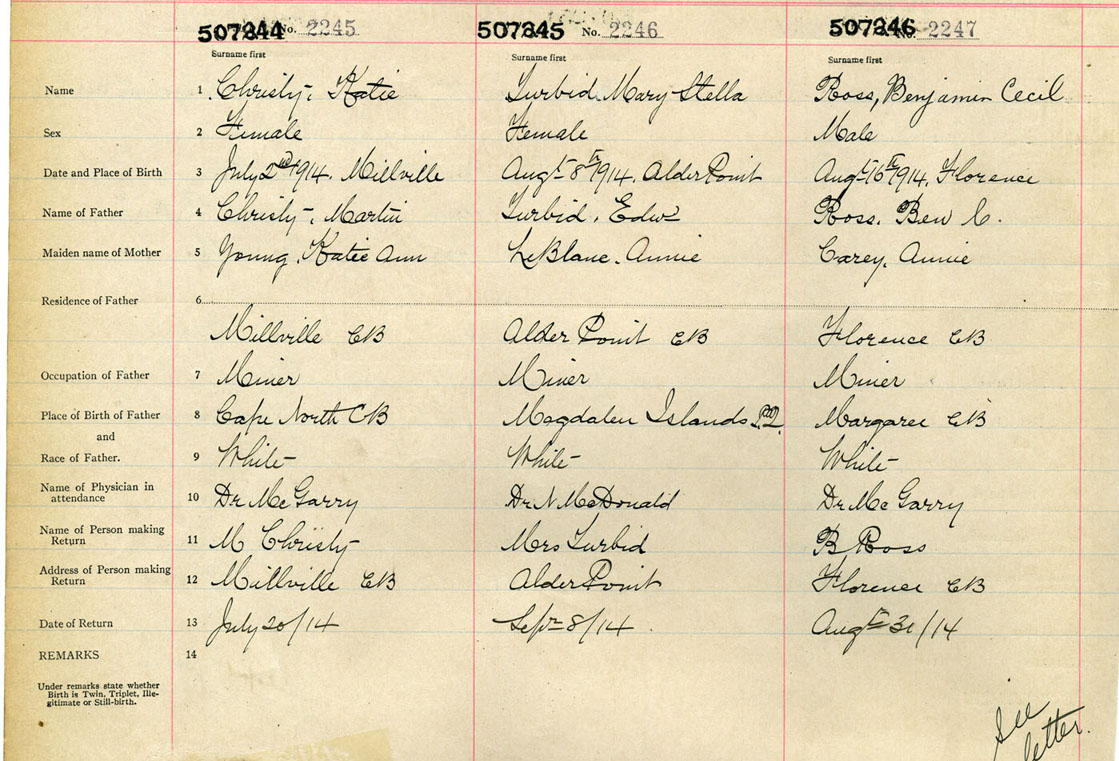 507844 No. 2245 507845 No. 2246 507846 No. 2247
Surname first Surname first Surname first
Name 1 Christy, Katie Turbid, Mary Stella Ross, Benjamin Cecil
Sex 2 Female Female Male
Date and Place of Birth 3 July 2nd 1914, Millville Augt 8th 1914, Alder Point Augt 16th 1914, Florence
Name of Father 4 Christy, Martin Turbid, Edw Ross, Ben C.
Maiden name of Mother 5 Young, Katie Ann LeBlanc, Annie Carey, Annie
Residence of Father 6
Millville CB Alder Point CB Florence CB
Occupation of Father 7 Miner Miner Miner
Place of Birth of Father 8 Cape North CB Magdalen Islands P.Q. Margaree CB
and
Race of Father. 9 White White White
Name of Physician in
attendance 10 Dr McGarry Dr N McDonald Dr McGarry
Name of Person making
Return 11 M Christy Mrs Turbid B Ross
Address of Person making
Return 12 Millville CB Alder Point Florence CB
Date of Return 13 July 20/14 Sepr 8/14 Augt 31/14
REMARKS 14
Under remarks state whether
Birth is Twin, Triplet, Ille-
gitimate or Still-birth.
See
letter.